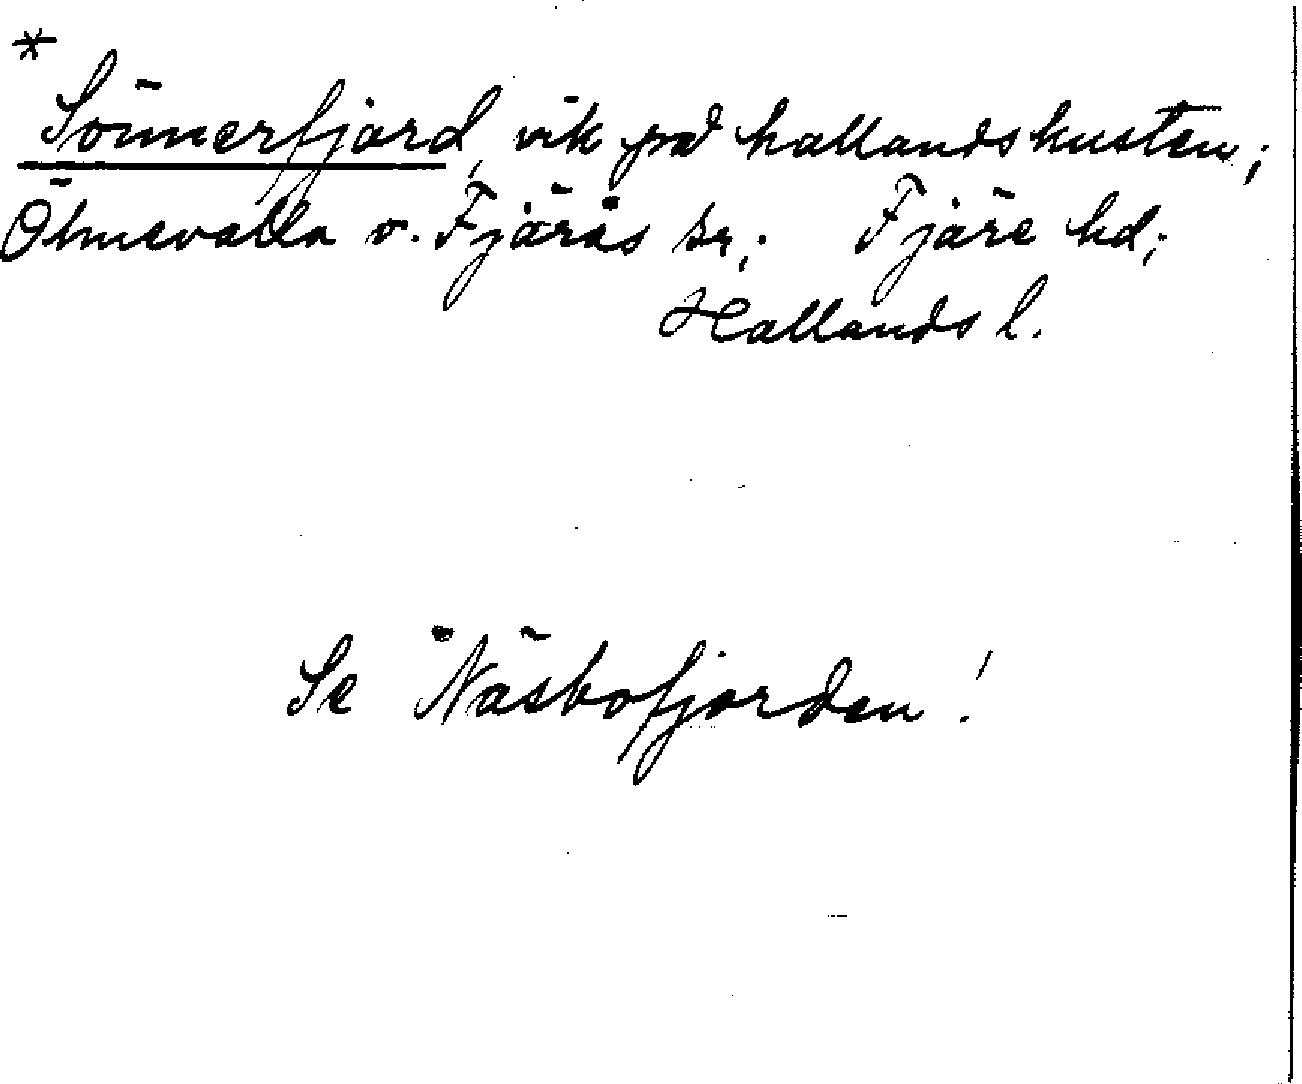 * Sönnerfjord, vik på hallandskusten;
Ölmevalla o. Fjärås sn; Fjäre hd;
Hallands l.
Se Näsbofjorden!